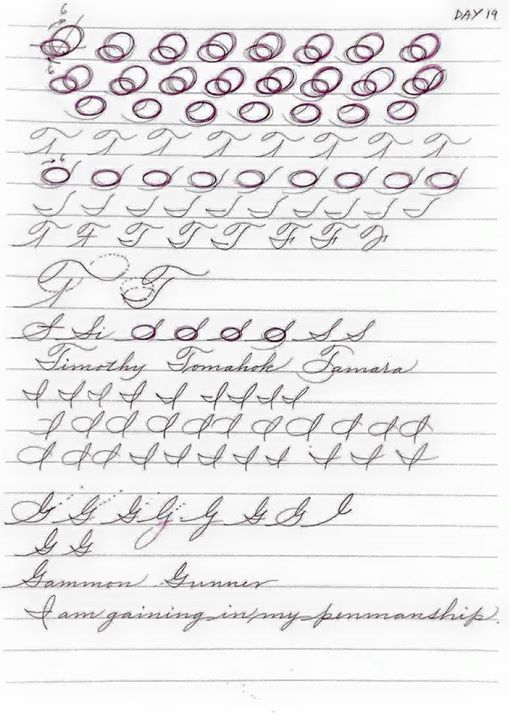 DAY 19
6
6
T T T T T T T T
6
T F T T T F F
T T
S Si S S
Timothy Tomahok Tamara
G G G G G G G
G G
Gammon Gunner
I am gaining in my penmanship.